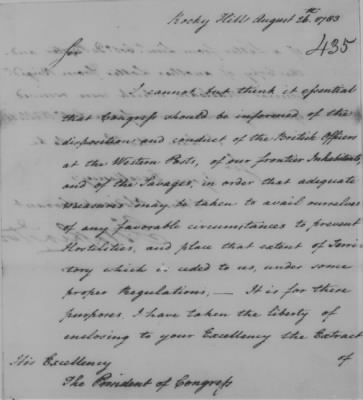 Rocky Hill August 26.th 1783
435
Sir
I cannot but think it essential
that Congress should be informed of the
disposition and conduct of the British Officers
at the Western Posts, of our frontier Inhabitants,
and of the Savages, in order that adequate
measures may be taken to avail ourselves
of any favorable circumstances to prevent
Hostilities, and place that extent of Terri=
tory which is ceded to us, under some
proper Regulations,— It is for these
purposes I have taken the liberty of
enclosing to your Excellency the Extract
of
His Excellency
The President of Congress